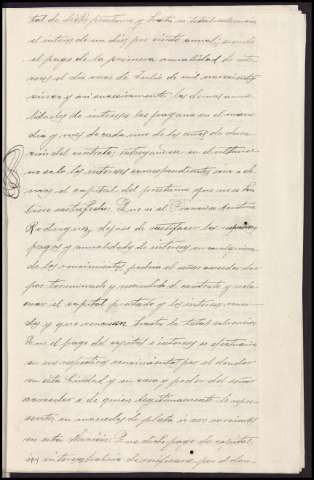 tal de dicho préstamo y hasta su total solvencia
el interés de un diez por ciento anual, siendo
el pago de la primera anualidad de inte-
reses el día once de Julio de mil novecientos
cinco y así sucesivamente las demas anua-
lidades de intereses las pagara en el mismo
dia y mes de cada uno de los años de dura-
ción del contrato, entregandose en el último
no solo los intereses correspondientes sino ade-
mas el capital del préstamo que no estu-
biere satisfecho. Que si el Francisco
Rodriguez, dejase de satisfacer los
pagos y anualidades de intereses en cualquiera
de los vencimientos podra el señor acreedor dar
por terminado y vencido el contrato y recla-
mar el capital prestado y los intereses venci-
dos y que vencieren hasta la total solvencia.
Que el pago del capital e intereses se efectuaria
en sus respectivos vencimientos por el deudor
en esta Ciudad y en casa y poder del señor
acreedor o de quien legitimamente le repre-
sente, en monedas de plata u oro corrientes
en esta Nación. Que dicho pago de capital
é intereses habria de verificarse por el deu-